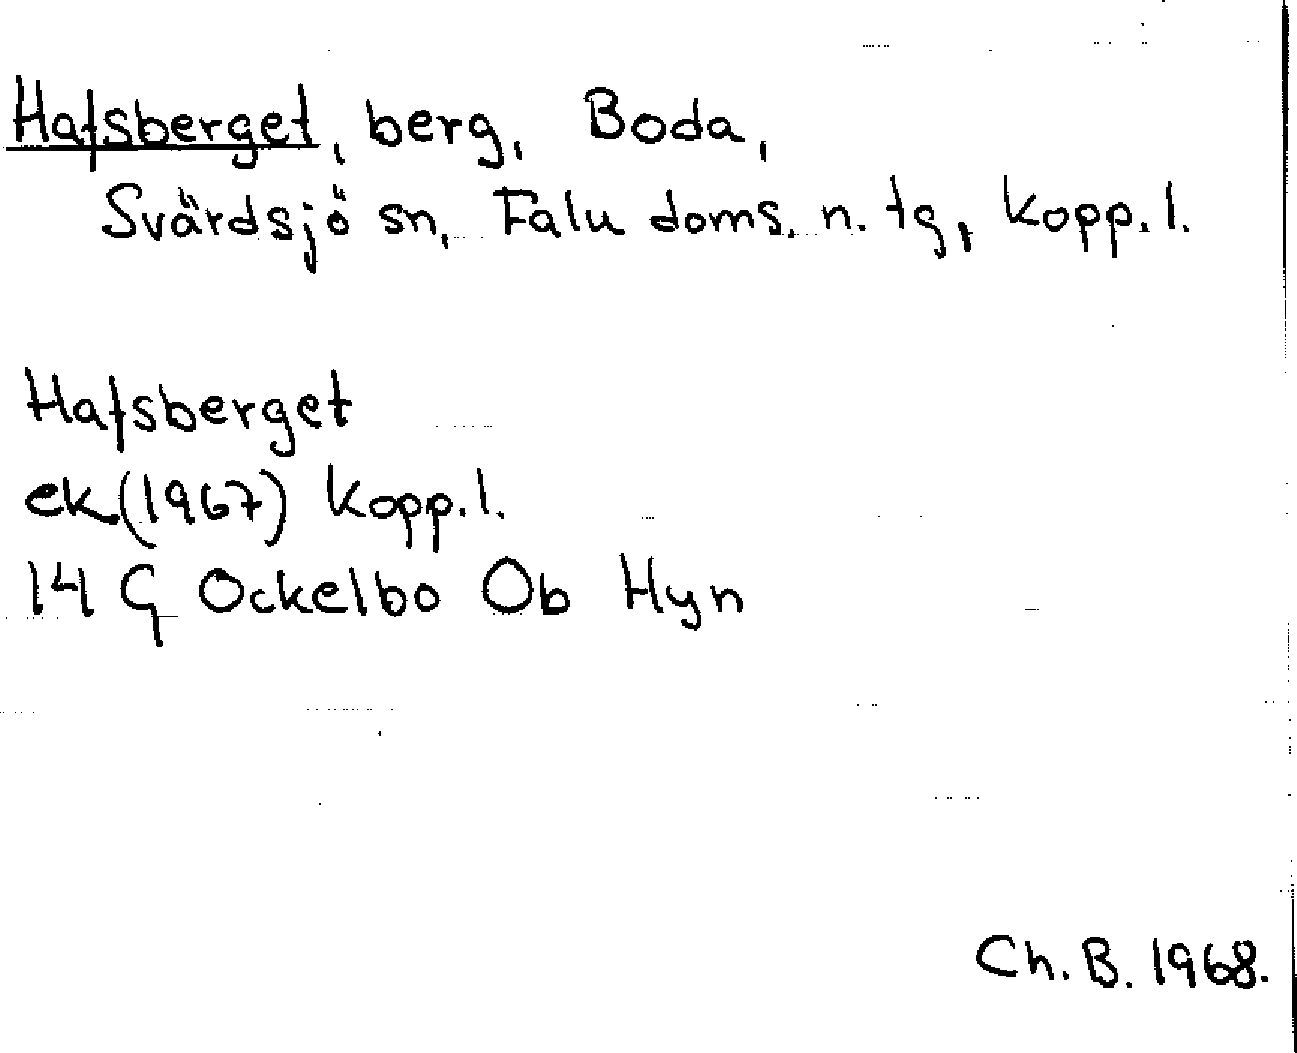 Hafsberget, berg, Boda,
Svärdsjö sn, Falu doms. n. tg, Kopp. l.
Hafsberget
ek (1967) Kopp. l.
14 G Ockelbo Ob Hyn
Ch. B. 1968.